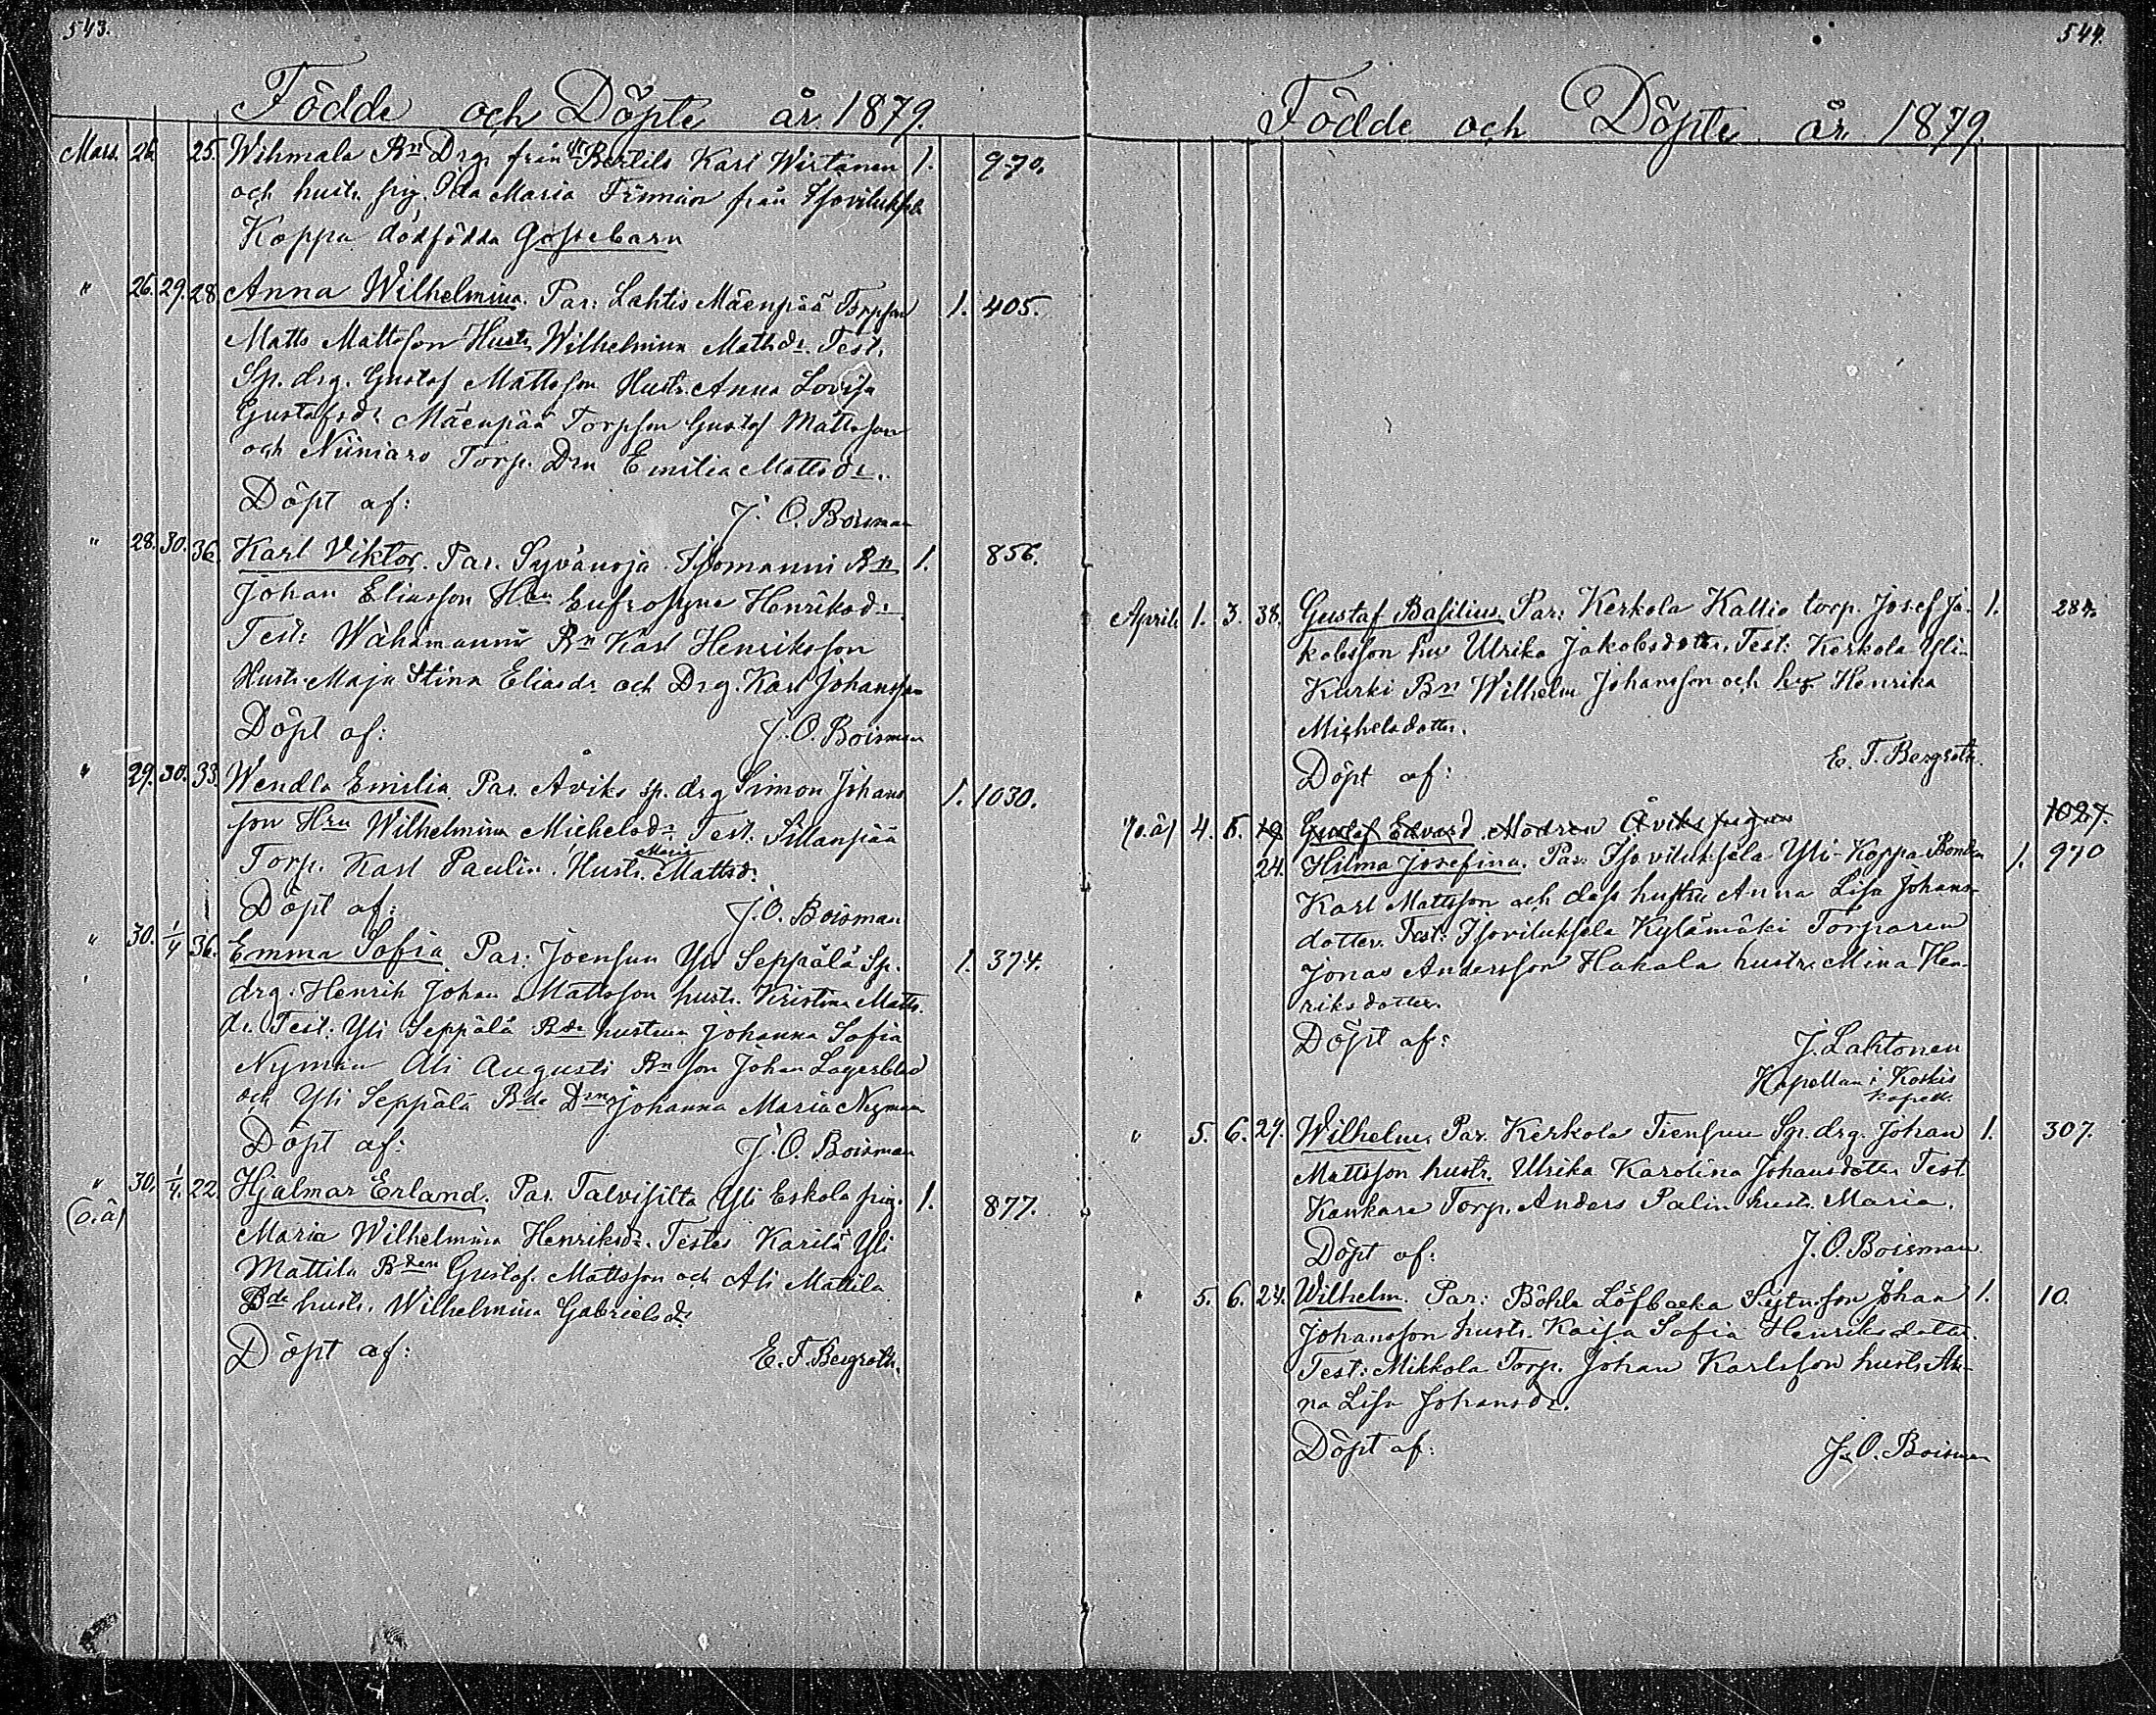 543.
Födde och Döpte år 1879.
Mars. 26. 25. Wihmala Rn Drg. från Bertils Karl Wirtanen 1. 970.
och hustr. pig. Ida Maria från Isovilukselä
Koppa dödfödda Gossebarn
" 26. 29. 28 Anna Wilhelmina. Par: Lahtis Mäenpää Torpson 1. 405.
Matts Mattsson Hustr. Wilhelmina Mattsdr. Test.
Sp. drg. Gustaf Mattsson Hustr. Anna Lovisa
Gustafsdr. Mäenpää Torpson Gustaf Mattsson
och Niiniaro Torp. Drn Emilia Mattsdr.
Döpt af:
J. O. Boisman
" 28. 30. 36. Karl Viktor. Par. Syvänoja Isomanni Rn 1. 856.
Johan Eliasson Hrn Eufrosyne Henriksdr.
Test: Wähämanni Rn Karl Henriksson
Hustr. Maja Stina Eliasdr. och Drg. Karl Johansson
Döpt af:
J. O. Boisman
" 29. 30. 33. Wendla Emilia. Par. Åviks sp. drg Simon Johans 1. 1030.
son Hrn Wilhelmina Michelsdr. Test. Sillanpää
Torp. Karl Paulin. Hustr. Maria Mattsdr.
Döpt af:
J. O. Boisman
" 30. 1/4 36. Emma Sofia. Par: Joensuu Yli Seppälä Sp. 1. 374.
drg. Henrik Johan Mattsson hustr. Kristina Matts
dr. Test. Yli Seppälä Bde hustrun Johanna Sofia
Nyman Ali Augusti Rn son Johan Lagerblad
och Yli Seppälä Bde Drn Johanna Maria Nyman
Döpt af:
J. O. Boisman
" 30. 1/4. 22. Hjalmar Erland. Par. Talvisilta Yli Eskola pig. 1. 877.
(o.ä) Maria Wilhelmina Henriksdr. Testes Karilä Yli
Mattila Bden Gustaf Mattsson och Ali Mattila
Bde hustr. Wilhelmina Gabrielsdr.
Döpt af:
E. F. Bergroth.
544.
Födde och Döpte år 1879.
April 1. 3. 38. Gustaf Basilius. Par: Kerkola Kallio torp. Josef Ja- 1. 284.
kobsson hu Ulrika Jakobsdotter. Test: Kerkola Yli-
Kurki Bn Wilhelm Johansson och Henrika
Michelsdotter.
Döpt af:
E. F. Bergroth.
(o.ä) 4. 5. 19 Gustaf Edvard. Modren Åviks pigan 1027.
24. Hilma Josefina. Par. Isovilukselä Yli-Koppa Bonden 1. 970
Karl Mattsson och dess hustru Anna Lisa Johans-
dotter. Test: Isovilukselä Kylämäki Torparen
Jonas Andersson Hakala hustr. Mina Hen-
riksdotter.
Döpt af:
J. Lahtonen
Kapellan i Koskis
kapell.
" 5. 6. 27. Wilhelm. Par. Kerkola Tiensuu Sp. drg. Johan 1. 307.
Mattsson hustr. Ulrika Karolina Johansdotter Test.
Kankare Torp. Anders Palin hustr. Maria.
Döpt af:
J. O. Boisman
" 5. 6. 24. Wilhelm. Par: Böhle Löfbacka Sytn.son Johan 1. 10.
Johansson hustr. Kaisa Sofia Henriksdotter.
Test: Mikkola Torp. Johan Karlsson hustr. An-
na Lisa Johansdr.
Döpt af:
J. O. Boisman